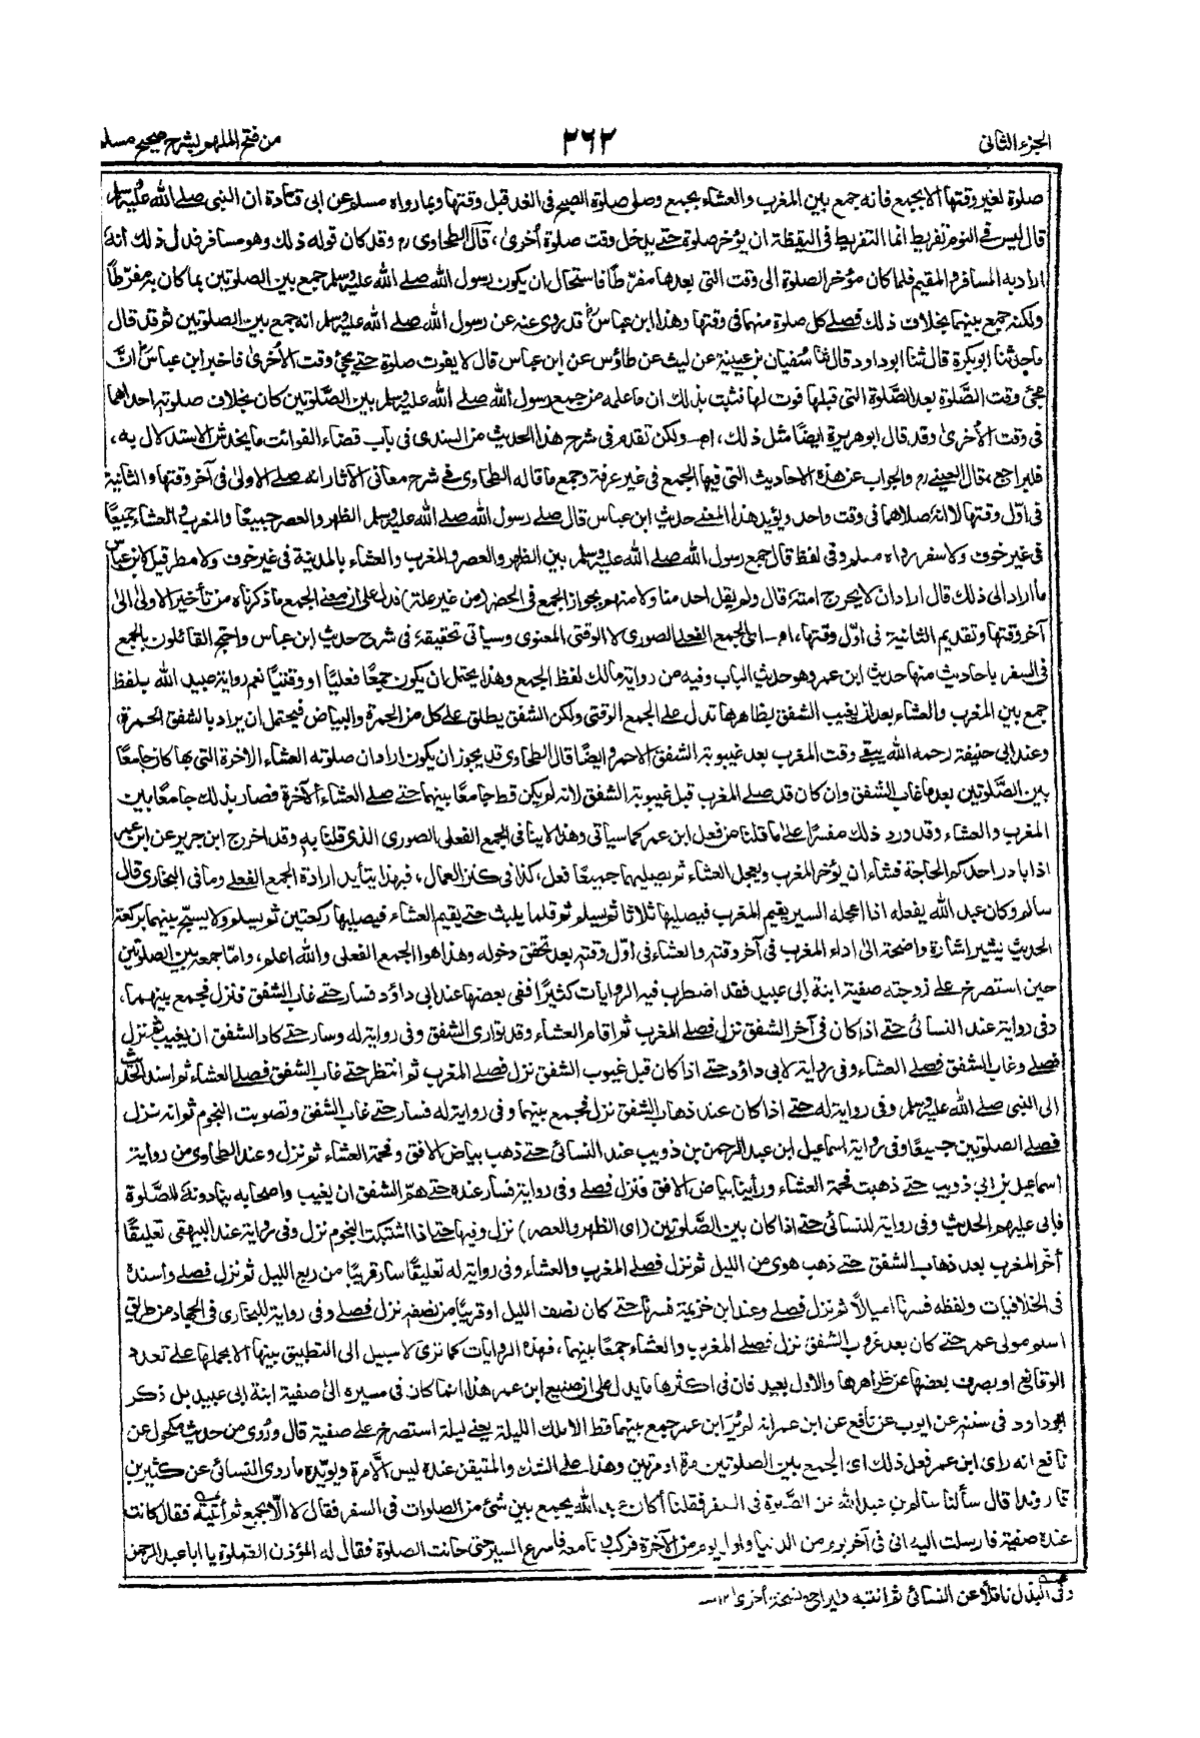 الجزء الثاني
٢٦٢
من فتح الملهم بشرح صحيح مسلم
صلوة لغير وقتها الا بجمع فانه جمع بين المغرب والعشاء بجمع وصلى صلوة الصبح فى الغد قبل وقتها وبما رواه مسلم عن ابى قتادة ان النبى صلى الله عليه وسلم
قال ليس فى النوم تفريط انما التفريط فى اليقظة ان يؤخر صلوة حتى يدخل وقت صلوة أخرى، قال الطحاوى رح وقد كان قوله ذلك وهو مسافر فدل ذلك انه
اراد به المسافر والمقيم فلما كان مؤخر الصلوة الى وقت التى بعدها مفرّطًا فاستحال ان يكون رسول الله صلى الله عليه وسلم جمع بين الصلوتين بما كان به مفرّطًا
ولكنه جمع بينهما بخلاف ذلك فصلى كل صلوة منهما فى وقتها وهذا ابن عباس رضى قد روى عنه عن رسول الله صلى الله عليه وسلم انه جمع بين الصلوتين ثم قد قال
ما حدثنا ابو بكرة قال ثنا ابو داود قال ثنا سُفيان بن عيينة عن ليث عن طاؤس عن ابن عباس قال لا يفوت صلوة حتى يجئ وقت الأخرى فاخبر ابن عباس رضى انّ
مجئ وقت الصّلوة بعد الصّلوة التى قبلها فوت لها فثبت بذلك ان ما علمه من جمع رسول الله صلى الله عليه وسلم بين الصّلوتين كان بخلاف صلوته احداهما
فى وقت الأخرى وقد قال ابو هريرة ايضًا مثل ذلك، اهـ ولكن تقدم فى شرح هذا الحديث من السندى فى باب قضاء الفوائت ما يخدش الاستدلال به،
فليراجع، قال العينى رح والجواب عن هذه الاحاديث التى فيها الجمع فى غير عرفة وجمع ما قاله الطحاوى فى شرح معانى الآثار انه صلى الاولى فى آخر وقتها والثانية
فى اوّل وقتها لا انه صلاهما فى وقت واحد ويؤيد هذا المعنى حديث ابن عباس قال صلى رسول الله صلى الله عليه وسلم الظهر والعصر جميعًا والمغرب والعشاء جميعًا
فى غير خوف ولا سفر رواه مسلم وفى لفظ قال جمع رسول الله صلى الله عليه وسلم بين الظهر والعصر والمغرب والعشاء بالمدينة فى غير خوف ولا مطر قيل لابن عباس
ما اراد الى ذلك قال اراد ان لا يحرج امته قال ولم يقل احد منا ولا منهم بجواز الجمع فى الحضر (من غير علة) فدل على ان معنى الجمع ما ذكرناه من تأخير الاولى الى
آخر وقتها وتقديم الثانية فى اوّل وقتها، اهـ اى الجمع الفعلى الصورى لا الوقتى المعنوى وسيأتى تحقيقه فى شرح حديث ابن عباس واحتج القائلون بالجمع
فى السفر باحاديث منها حديث ابن عمر وهو حديث الباب وفيه من رواية مالك لفظ الجمع وهذا يحتمل ان يكون جمعًا فعليًا او وقتيًا نعم رواية عبيد الله بلفظ
جمع بين المغرب والعشاء بعد ان يغيب الشفق بظاهرها تدل على الجمع الوقتى ولكن الشفق يطلق على كل من الحمرة والبياض فيحتمل ان يراد بالشفق الحمرة،
وعند ابى حنيفة رحمه الله يبقى وقت المغرب بعد غيبوبة الشفق الاحمر وايضًا قال الطحاوى قد يجوز ان يكون اراد ان صلوته العشاء الآخرة التى بها كان جامعًا
بين الصّلوتين بعد ما غاب الشفق وان كان قد صلى المغرب قبل غيبوبة الشفق لانه لم يكن قط جامعًا بينهما حتى صلى العشاء الآخرة فصار بذلك جامعًا بين
المغرب والعشاء وقد ورد ذلك مفسرًا على ما قلنا من فعل ابن عمر كما سيأتى وهذا لا ينافى الجمع الفعلى الصورى الذى قلنا به وقد اخرج ابن جرير عن ابن عمر
اذا بادر احدكم الحاجة فشاء ان يؤخر المغرب ويعجل العشاء ثم يصليهما جميعًا فعل، كذا فى كنز العمال، فبهذا يتأيد ارادة الجمع الفعلى وما فى البخارى قال
سالم وكان عبد الله يفعله اذا اعجله السير يقيم المغرب فيصليها ثلاثا ثم يسلم ثم قلما يلبث حتى يقيم العشاء فيصليها ركعتين ثم يسلم ولا يسبّح بينهما بركعة
الحديث يشير اشارة واضحة الى اداء المغرب فى آخر وقته والعشاء فى اوّل وقته بعد تحقق دخوله وهذا هو الجمع الفعلى والله اعلم، وامّا جمعه بين الصلوتين
حين استصرخ على زوجته صفية ابنة ابى عبيد فقد اضطرب فيه الروايات كثيرًا ففى بعضها عند ابى داؤد فسار حتى غاب الشفق فنزل فجمع بينهما،
وفى رواية عند النسائى حتى اذا كان فى آخر الشفق نزل فصلى المغرب ثم اقام العشاء وقد توارى الشفق وفى رواية له وسار حتى كاد الشفق ان يغيب ثم نزل
فصلى وغاب الشفق فصلى العشاء وفى رواية لابى داؤد حتى اذا كان قبل غيوب الشفق نزل فصلى المغرب ثم انتظر حتى غاب الشفق فصلى العشاء ثم اسند الحديث
الى النبى صلى الله عليه وسلم وفى رواية له حتى اذا كان عند ذهاب الشفق نزل فجمع بينهما وفى رواية له فسار حتى غاب الشفق وتصوبت النجوم ثم انه نزل
فصلى الصلوتين جميعًا وفى رواية اسماعيل ابن عبد الرحمن بن ذويب عند النسائى حتى ذهب بياض الافق وفحمة العشاء ثم نزل وعند الطحاوى من رواية
اسماعيل بن ابى ذويب حتى ذهبت فحمة العشاء ورأينا بياض الافق فنزل فصلى وفى رواية فسار عنده حتى همّ الشفق ان يغيب واصحابه ينادونه للصّلوة
فابى عليهم الحديث وفى رواية للنسائى حتى اذا كان بين الصّلوتين (اى الظهر والعصر) نزل وفيها حتى اذا اشتبكت النجوم نزل وفى رواية عند البيهقى تعليقًا
أخّر المغرب بعد ذهاب الشفق حتى ذهب هوى من الليل ثم نزل فصلى المغرب والعشاء وفى رواية له تعليقًا سار قريبًا من ربع الليل ثم نزل فصلى واسنده
فى الخلافيات ولفظه فسرنا اميالًا ثم نزل فصلى وعند ابن خزيمة فسرنا حتى كان نصف الليل او قريبًا من نصفه نزل فصلى وفى رواية للبخارى فى الجهاد من طريق
اسلم مولى عمر حتى كان بعد غروب الشفق نزل فصلى المغرب والعشاء جمعًا بينهما، فهذه الروايات كما ترى لا سبيل الى التطبيق بينها الا بحملها على تعدد
الوقائع او بصرف بعضها عن ظواهرها والاول بعيد فان فى اكثرها ما يدل على ان صنيع ابن عمر هذا انما كان فى مسيره الى صفية ابنة ابى عبيد بل ذكر
ابو داود فى سننه عن ايوب عن نافع عن ابن عمر انه لم يُرَ ابن عمر جمع بينهما قط الا تلك الليلة يعنى ليلة استصرخ على صفية قال ورُوى من حديث مكحول عن
نافع انه راى ابن عمر فعل ذلك اى الجمع بين الصلوتين مرة او مرتين وهذا على الشك والمتيقن عنده ليس الّا مرة ويؤيّده ما روى النسائى عن كثير بن
قاروندا قال سألنا سالم بن عبد الله عن الصّلوة فى السفر فقلنا أكان عبد الله يجمع بين شئ من الصلوات فى السفر فقال لا الّا بجمع ثم أتيته فقال كانت
عنده صفية فارسلت اليه انى فى آخر يوم من الدنيا واول يوم من الآخرة فركب وانا معه فاسرع السير حتى حانت الصلوة فقال له المؤذن الصلوة يا ابا عبد الرحمن
وفى البذل ناقلًا عن النسائى ثم انتبه فليراجع نسخة أخرى ١٢